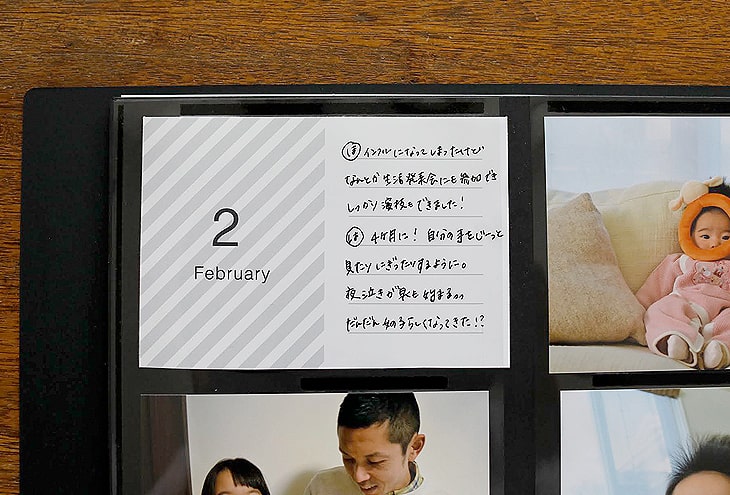 2
February
ほ インフルになってしまったけど
なんとか生活発表会にも参加でき
しっかり演技もできました!
は 4ケ月に! 自分の手をじーっと
見たりにぎったりするように。
夜泣きが早くも始まる
だんだん女の子らしくなってきた!?